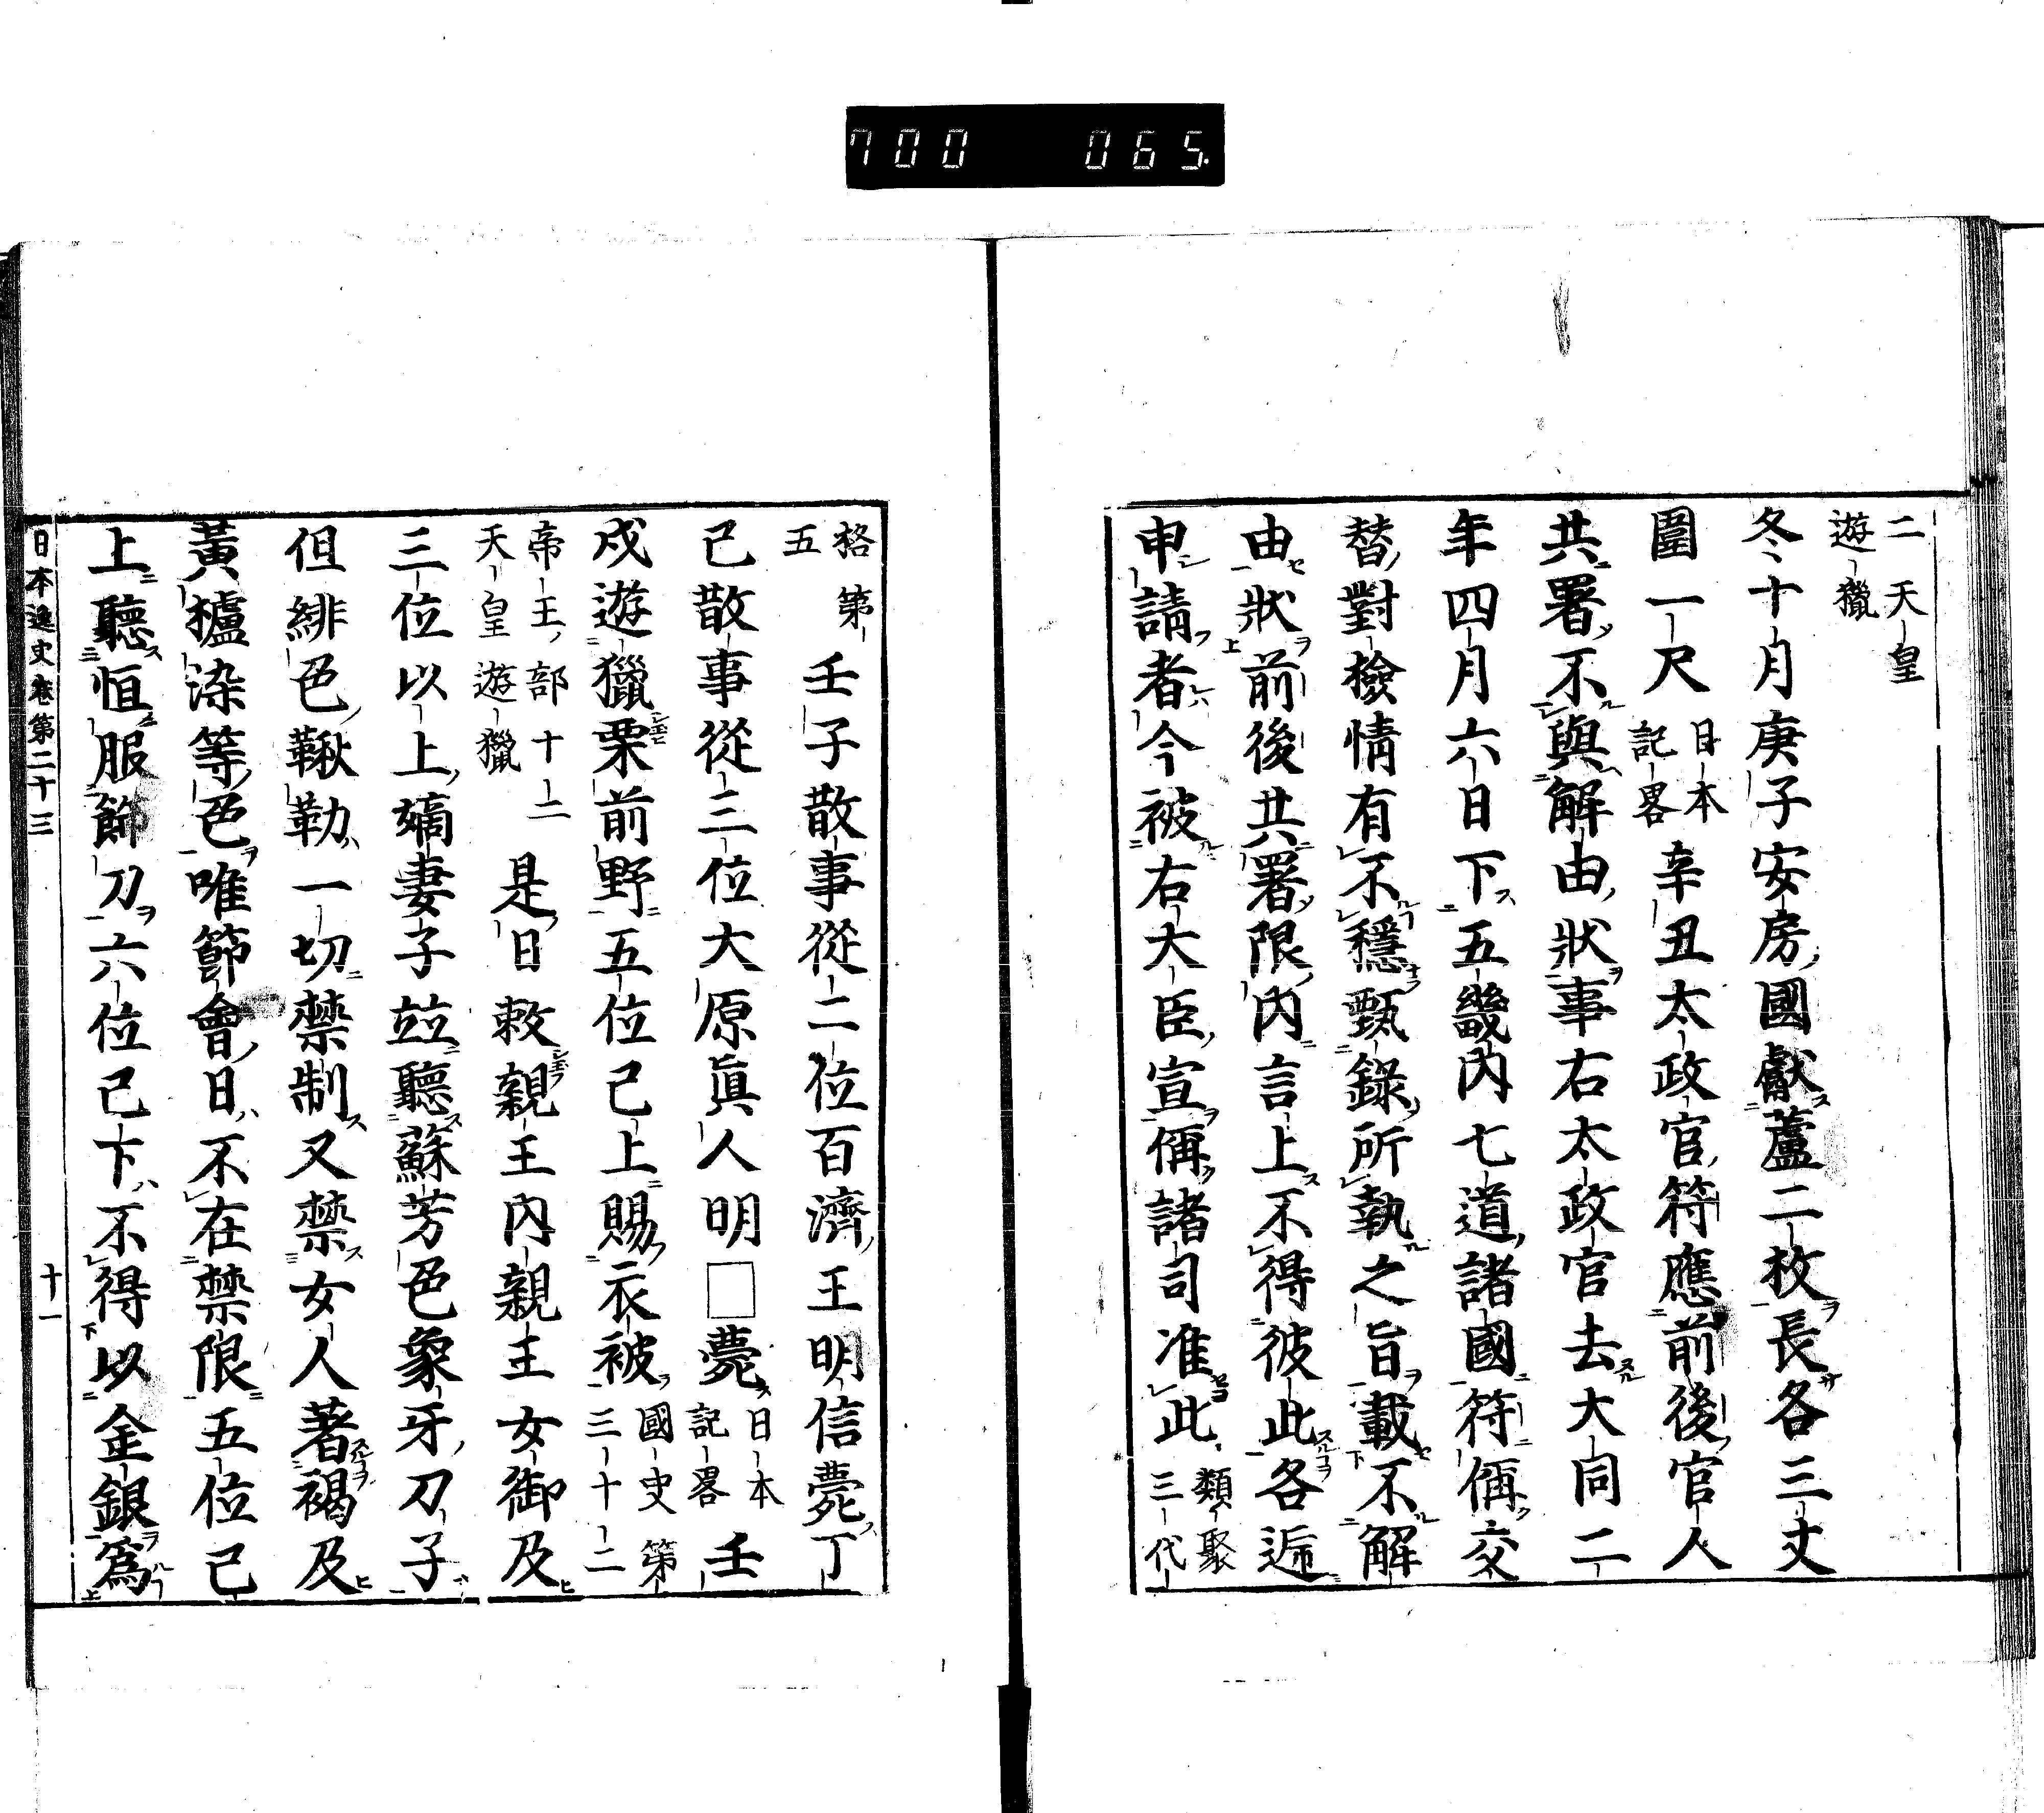 700 065.
二 天皇
遊獵
冬十月庚子安房國獻蘆二枚長各三丈
圍一尺 日本
記畧 辛丑太政官符應前後官人
共署不與解由狀事右太政官去大同二
年四月六日下五畿內七道諸國符偁交
替對檢情有不穩甄錄所執之旨載不解
由狀前後共署限內言上不得彼此各遞
申請者今被右大臣宣偁諸司准此 類聚
三代
格第
五 壬子散事從二位百濟王明信薨丁
已散事從三位大原眞人明□薨 日本
記畧 壬
戌遊獵栗前野五位已上賜衣被 國史第
三十二
帝王部十二
天皇遊獵 是日敕親王內親王女御及
三位以上嫡妻子竝聽蘇芳色象牙刀子
但緋色鞦勒一切禁制又禁女人著褐及
黃櫨染等色唯節會日不在禁限五位已
上聽恒服節刀六位已下不得以金銀爲
日本逸史卷第二十三 十一